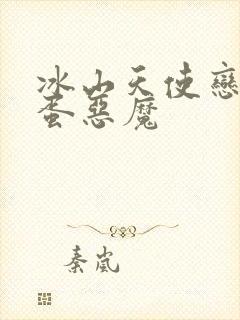 冰山天使戀
蛋惡魔
秦嵐